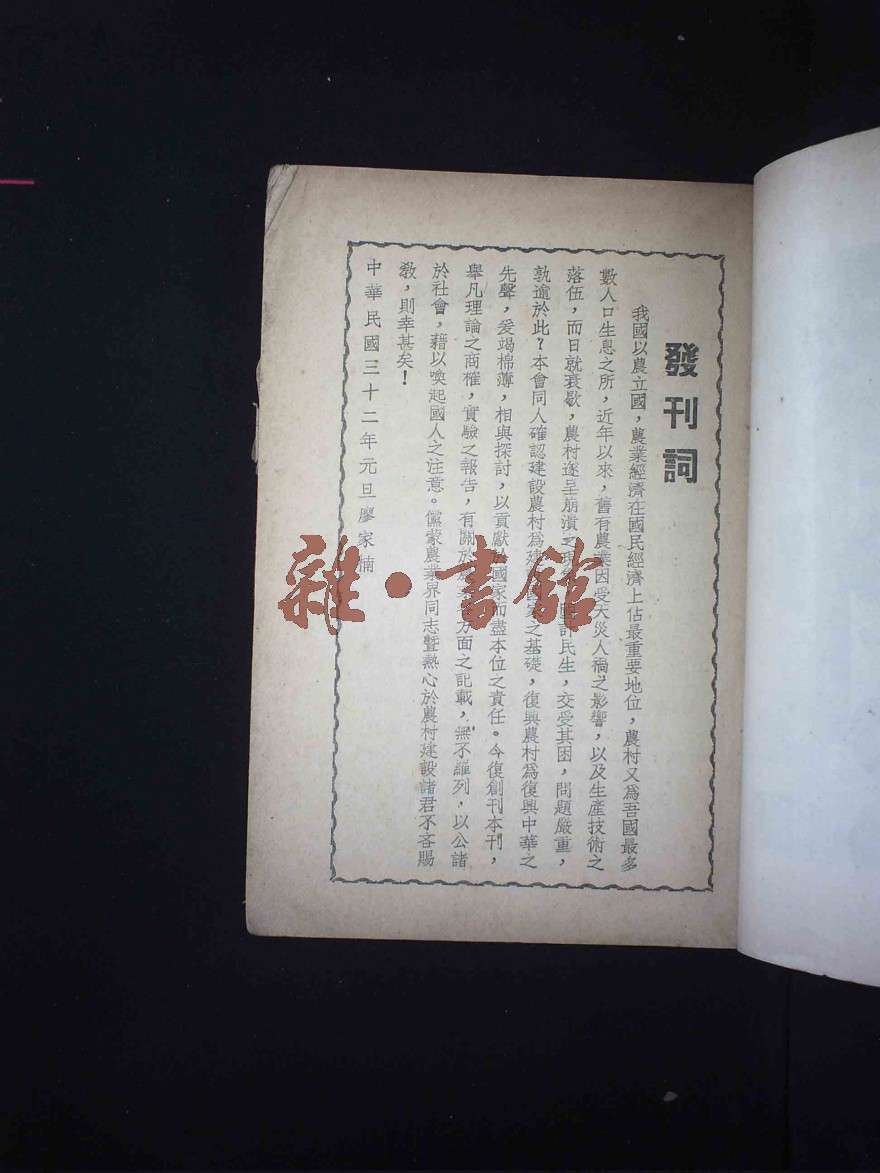 發刊詞
我國以農立國，農業經濟在國民經濟上佔最重要地位，農村又為吾國最多
數人口生息之所，近年以來，舊有農業因受天災人禍之影響，以及生產技術之
落伍，而日就衰歇，農村逐呈崩潰之現象，國計民生，交受其困，問題嚴重，
孰逾於此？本會同人確認建設農村為建設國家之基礎，復興農村為復興中華之
先聲，爰竭棉薄，相與探討，以貢獻於國家而盡本位之責任。今復創刊本刊，
舉凡理論之商榷，實驗之報告，有關於農業各方面之記載，無不羅列，以公諸
於社會，藉以喚起國人之注意。儻蒙農業界同志暨熱心於農村建設諸君不吝賜
教，則幸甚矣！
中華民國三十二年元旦廖家楠
雜·書館